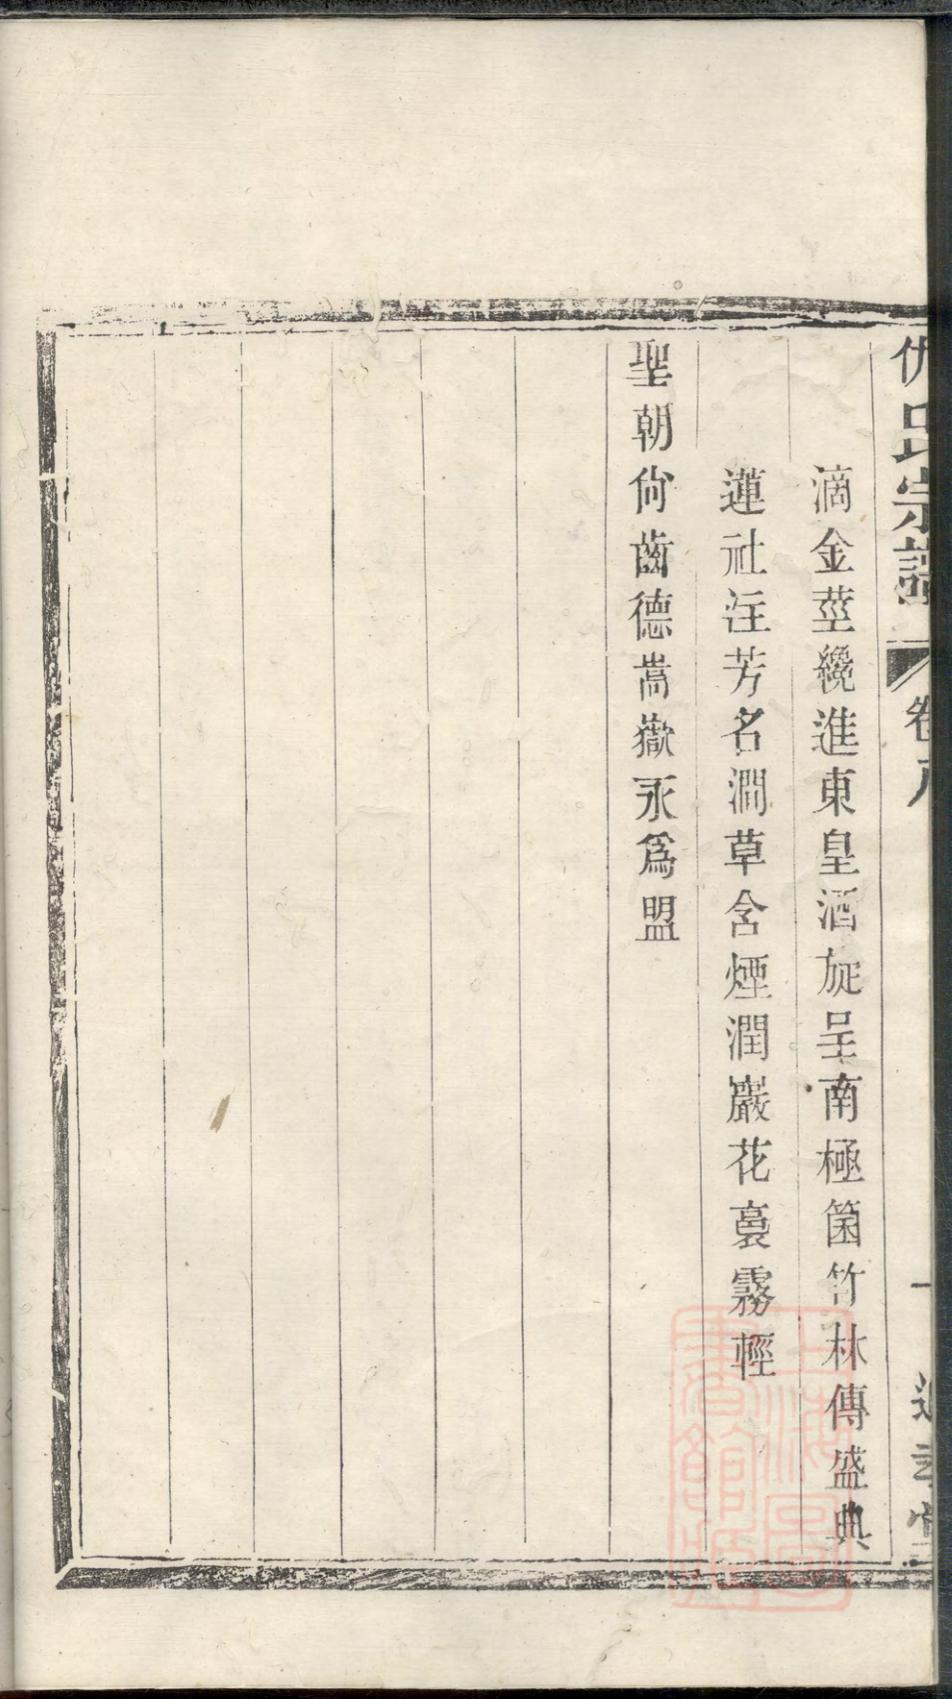 仇氏宗譜
卷八
一
滴金莖纔進東皇酒旋呈南極箇竹林傳盛典
蓮社注芳名澗草含煙潤巖花裛霧輕
聖朝尙齒德嵩嶽永爲盟
上海圖書館藏